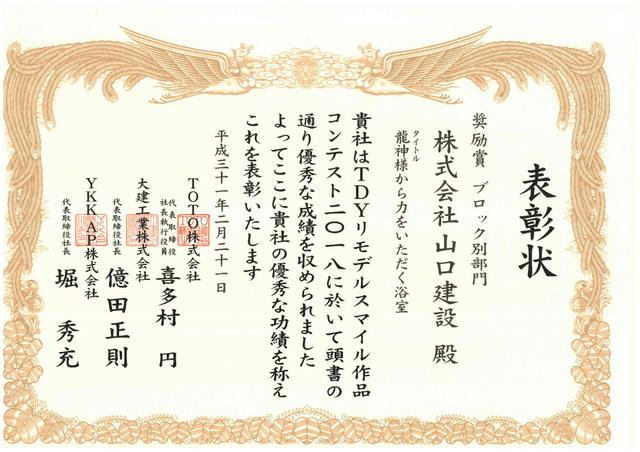 表彰状
奨励賞 ブロック別部門
株式会社 山口建設 殿
タイトル
龍神様から力をいただく浴室
貴社はTDYリモデルスマイル作品
コンテスト二〇一八に於いて頭書の
通り優秀な成績を収められました
よってここに貴社の優秀な功績を称え
これを表彰いたします
平成三十一年二月二十一日
TOTO株式会社
代表取締役
社長執行役員 喜多村 円
大建工業株式会社
代表取締役社長 億田正則
YKK AP株式会社
代表取締役社長 堀 秀充